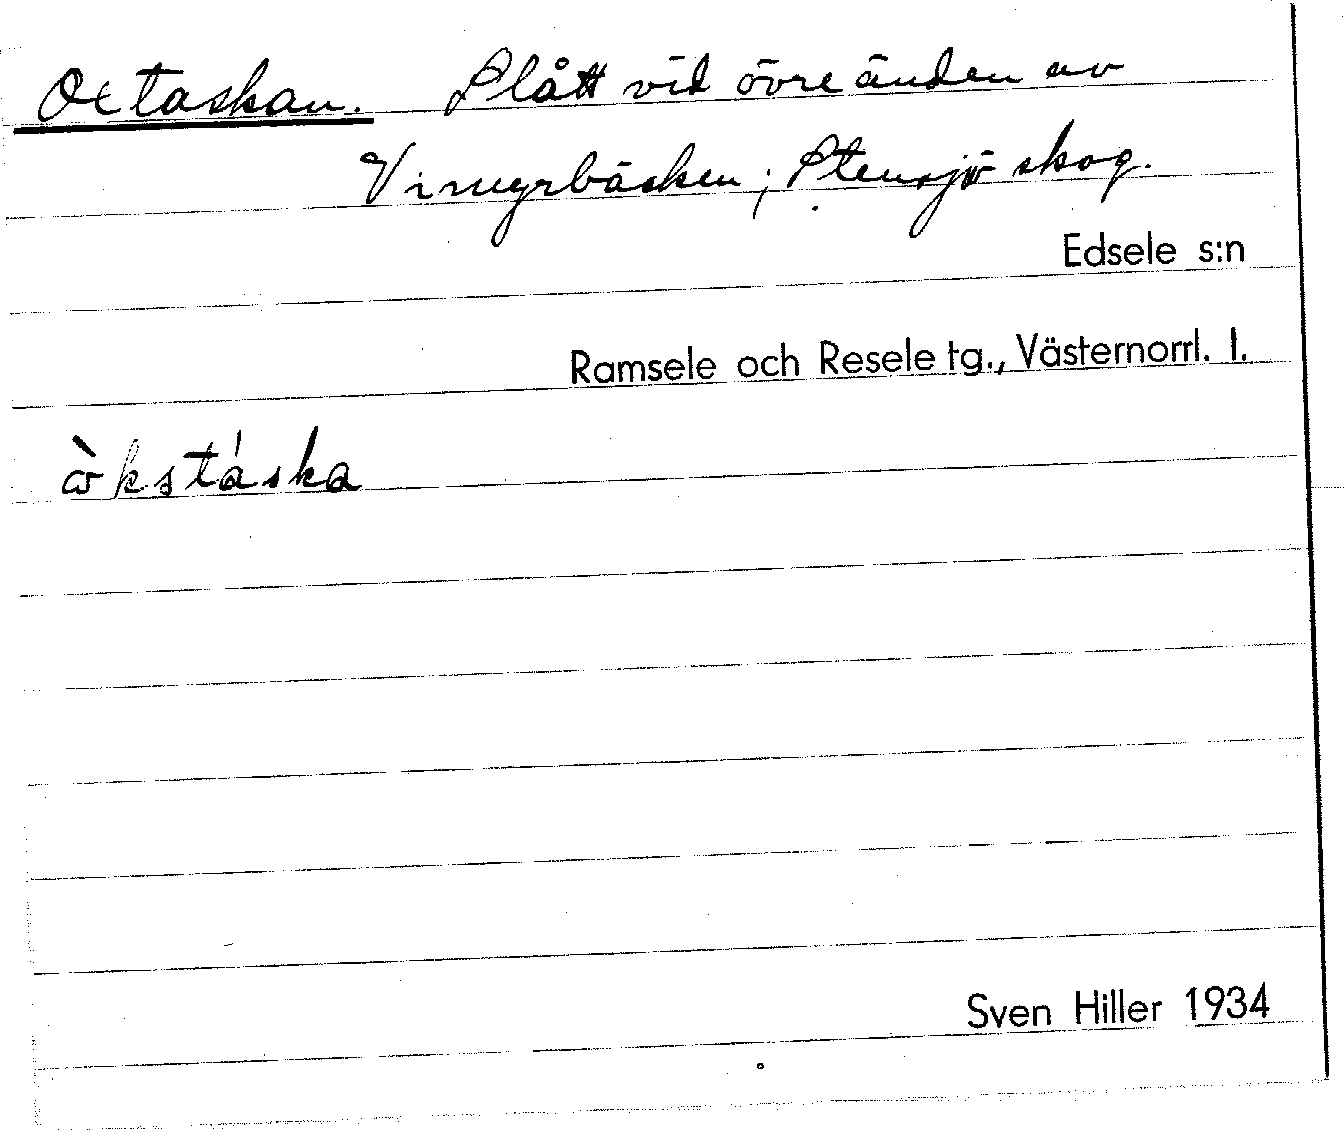 Oxtaskan. Slått vid övre änden av
Vimyrbäcken; Stensjö skog.
Edsele s:n
Ramsele och Resele tg., Västernorrl. l.
ò̈kstáska
Sven Hiller 1934